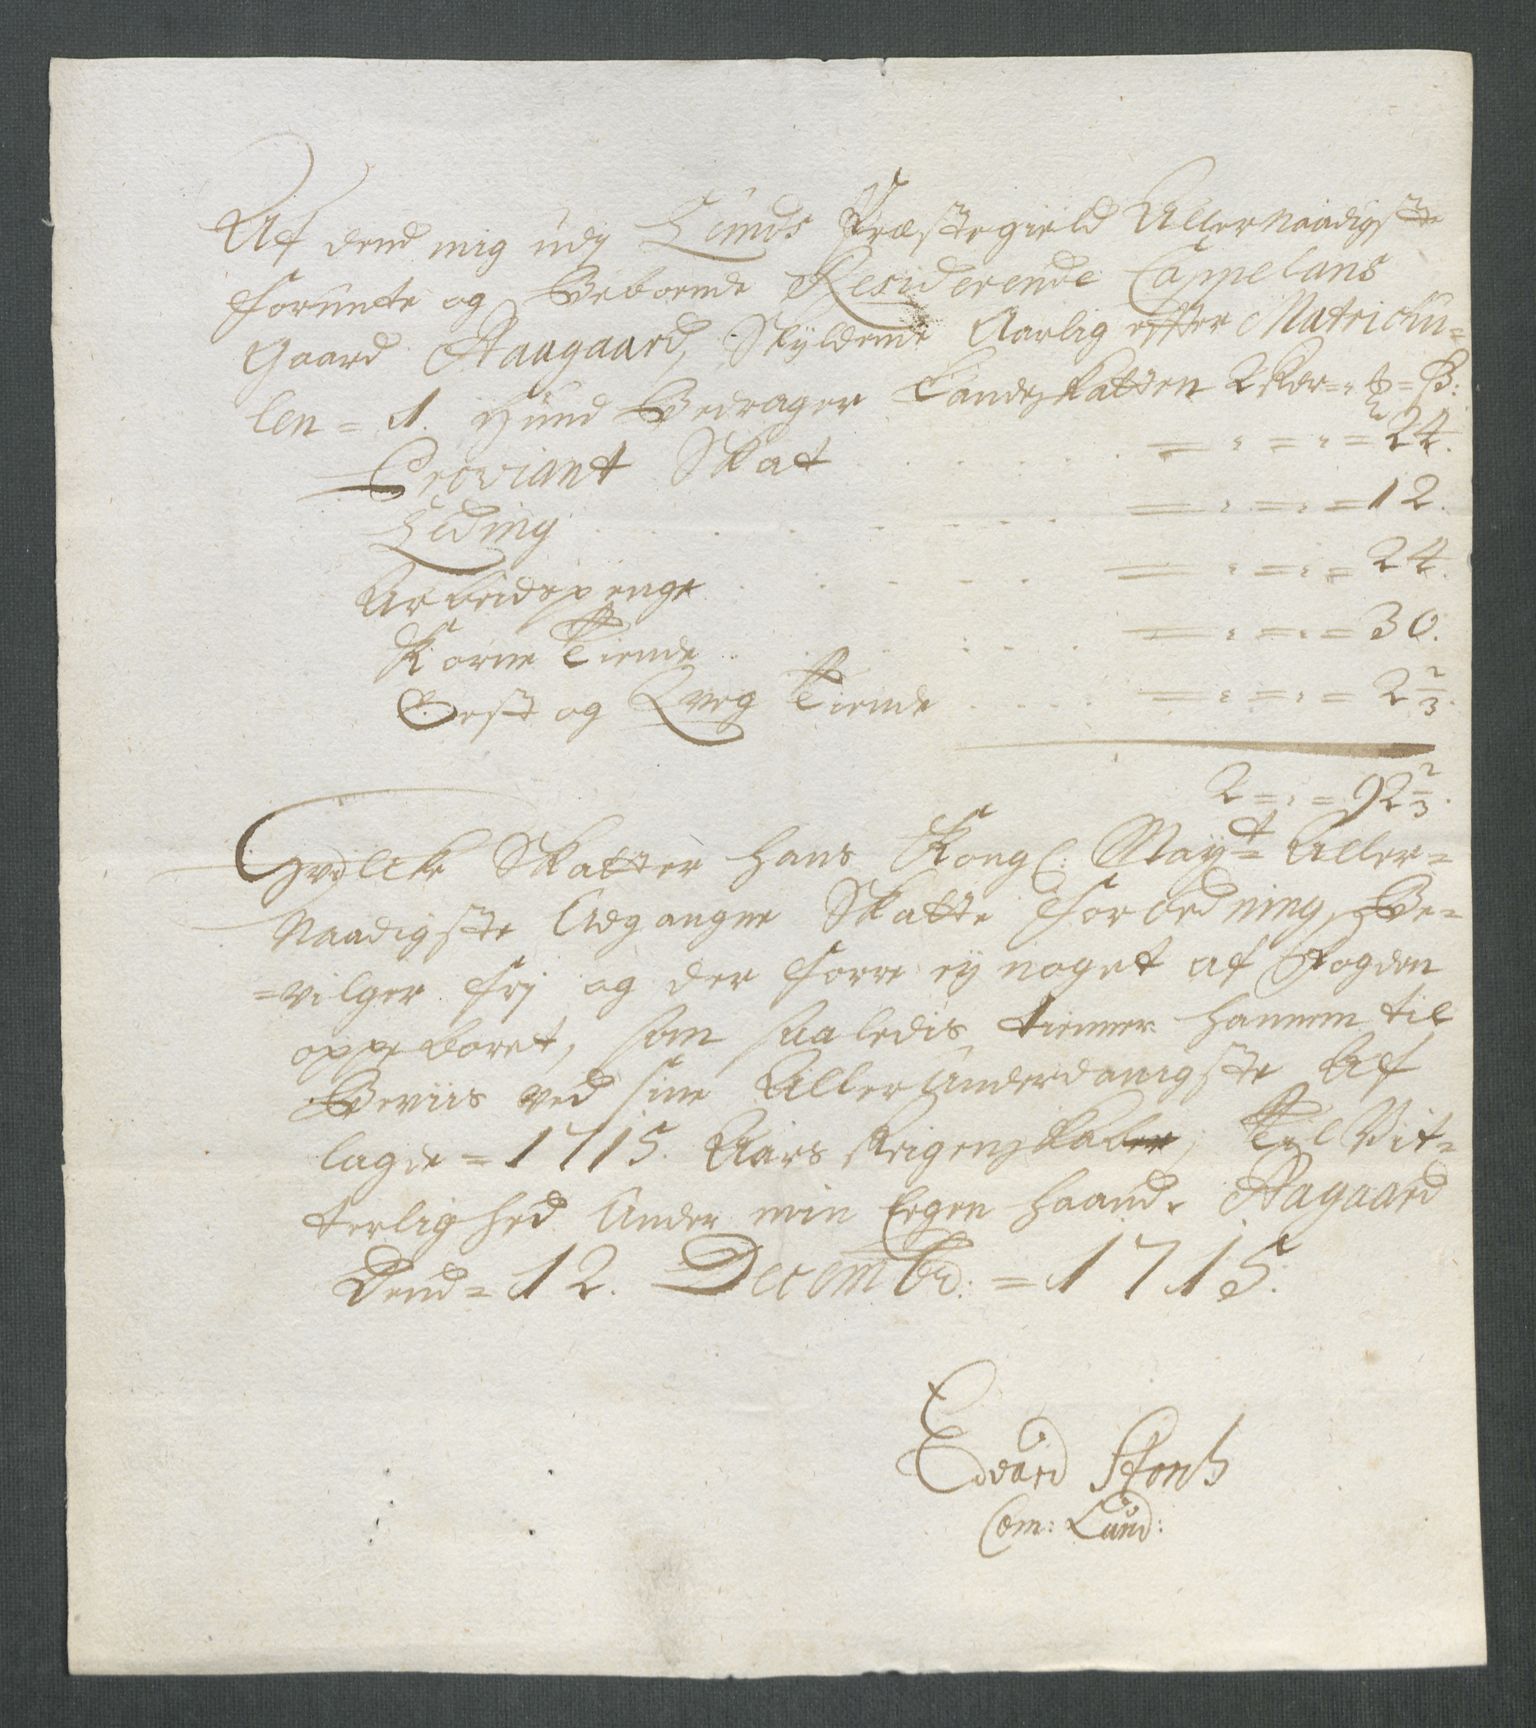 Af dend mig udj Lunds Præstegield Allernaadigste
forunte og Beboende Residerende Cappelans
Gaard Aaagaard, Skÿldende Aarlig effter Matricku=
len = 1. Hund Bedrager Landskatten 2 Rdr = , = ß:
Proviant Skat . . . . = , = , = 24.
Leding . . . . = , = , = 12.
Arbeidspenge . . . . = , = , = 24.
Korne Tiende . . . . = , = , = 30.
Ost og Qveg Tiende . . . . = , = , = 2 2/3.
2 = , = 92 2/3.
Hvilcke Skatter hans Kongl: Maÿt Aller=
Naadigste Udgangne Skatte forordning, Be=
=vilger frj og der forre eÿ noget af Fogden
oppeboret, som saaledis tienner hannem til
Beviis ved sine AllerUnderdanigste Af
lagde = 1715. Aars Reigenskaber, Til Vit=
terlighed Under min Eegen haand. Aagaard
Dend = 12. Decembr: = 1715.
Edvard
Com: Lund: